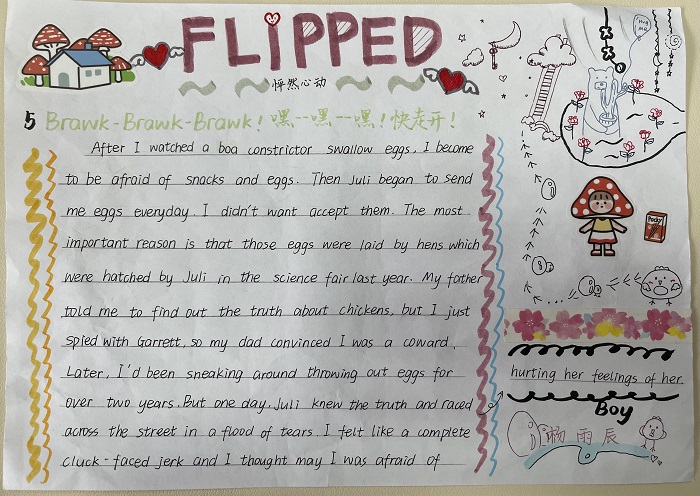 FLIPPED
怦然心动
Hug me
5 Brawk-Brawk-Brawk! 嘿--嘿--嘿! 快走开!
After I watched a boa constrictor swallow eggs, I become
to be afraid of snacks and eggs. Then Juli began to send
me eggs everyday. I didn't want accept them. The most
important reason is that those eggs were laid by hens which
were hatched by Juli in the science fair last year. My father
told me to find out the truth about chickens, but I just
spied with Garrett, so my dad convinced I was a coward.
Later, I'd been sneaking around throwing out eggs for
over two years. But one day, Juli knew the truth and raced
across the street in a flood of tears. I felt like a complete
cluck-faced jerk and I thought may I was afraid of
hurting her feelings of her.
Boy
杨雨辰
Pocky